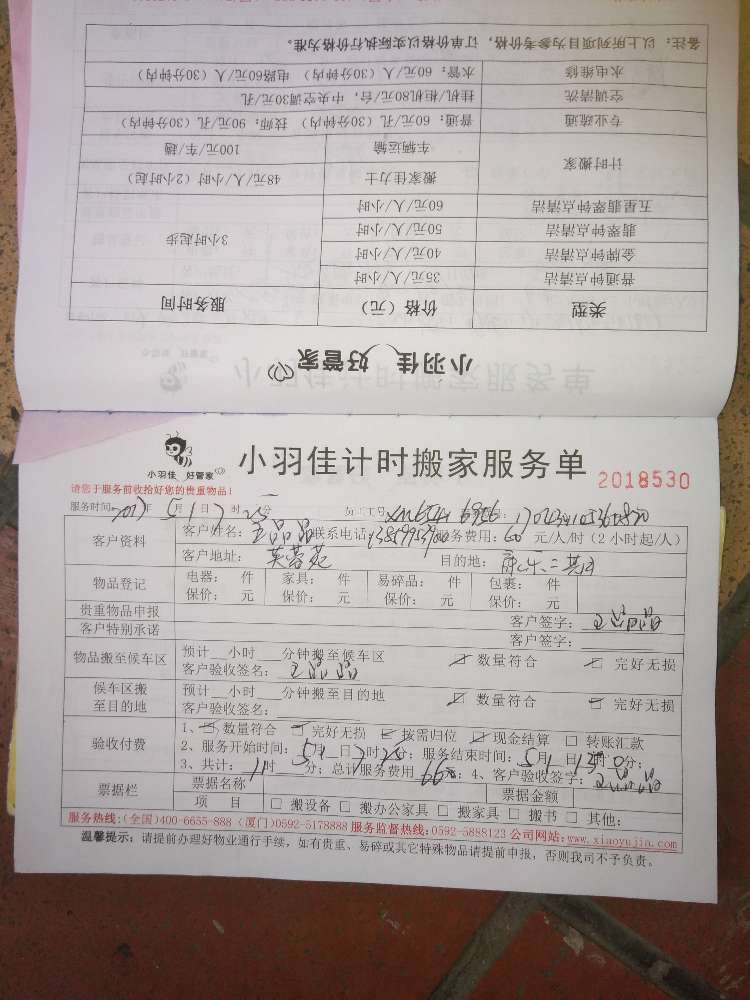 小羽佳 好管家
类型 价格(元) 服务时间
普通钟点清洁 35元/人/小时 3小时起步
金牌钟点清洁 40元/人/小时
翡翠钟点清洁 50元/人/小时
五星翡翠钟点清洁 60元/人/小时
计时搬家 搬家佳力士 48元/人/小时(2小时起)
车辆运输 100元/趟
专业疏通 普通:60元/孔(30分钟内) 技师:90元/孔(30分钟内)
空调清洗 挂机/柜机80元/台,中央空调30元/孔
水电维修 水管:60元/人(30分钟内) 电路60元/人(30分钟内)
备注:以上所列项目为参考价格,订单价格以实际执行价格为准。
小羽佳 好管家
小羽佳计时搬家服务单 2018530
请您于服务前收拾好您的贵重物品!
服务时间:2017年5月1日 时 分 员工工号
客户资料 客户姓名:王晶晶 联系电话 服务费用:60元/人/时(2小时起/人)
客户地址:芙蓉苑 目的地:
物品登记 电器: 件 家具: 件 易碎品: 件 包裹: 件
保价: 元 保价: 元 保价: 元 保价: 元
贵重物品申报 客户签字:王晶晶
客户特别承诺 客户签字:
物品搬至候车区 预计__小时___分钟搬至候车区 数量符合 完好无损
客户验收签名:王晶晶
候车区搬至目的地 预计__小时___分钟搬至目的地 数量符合 完好无损
客户验收签名:
验收付费 1、数量符合 完好无损 按需归位 现金结算 转账汇款
2、服务开始时间:5月1日 时 分;服务结束时间:5月1日 时 分;
3、共计: 时 分;总计服务费用 元;4、客户验收签字:王晶晶
票据栏 票据名称 票据金额
项 目 □搬设备 □搬办公家具 □搬家具 □搬书 □其他:
服务热线:(全国)400-6655-888 (厦门)0592-5178888 服务监督热线:0592-5888123 公司网站:www.xiaoyujia.com
温馨提示:请提前办理好物业通行手续,如有贵重、易碎或其它特殊物品请提前申报,否则我司不予负责。